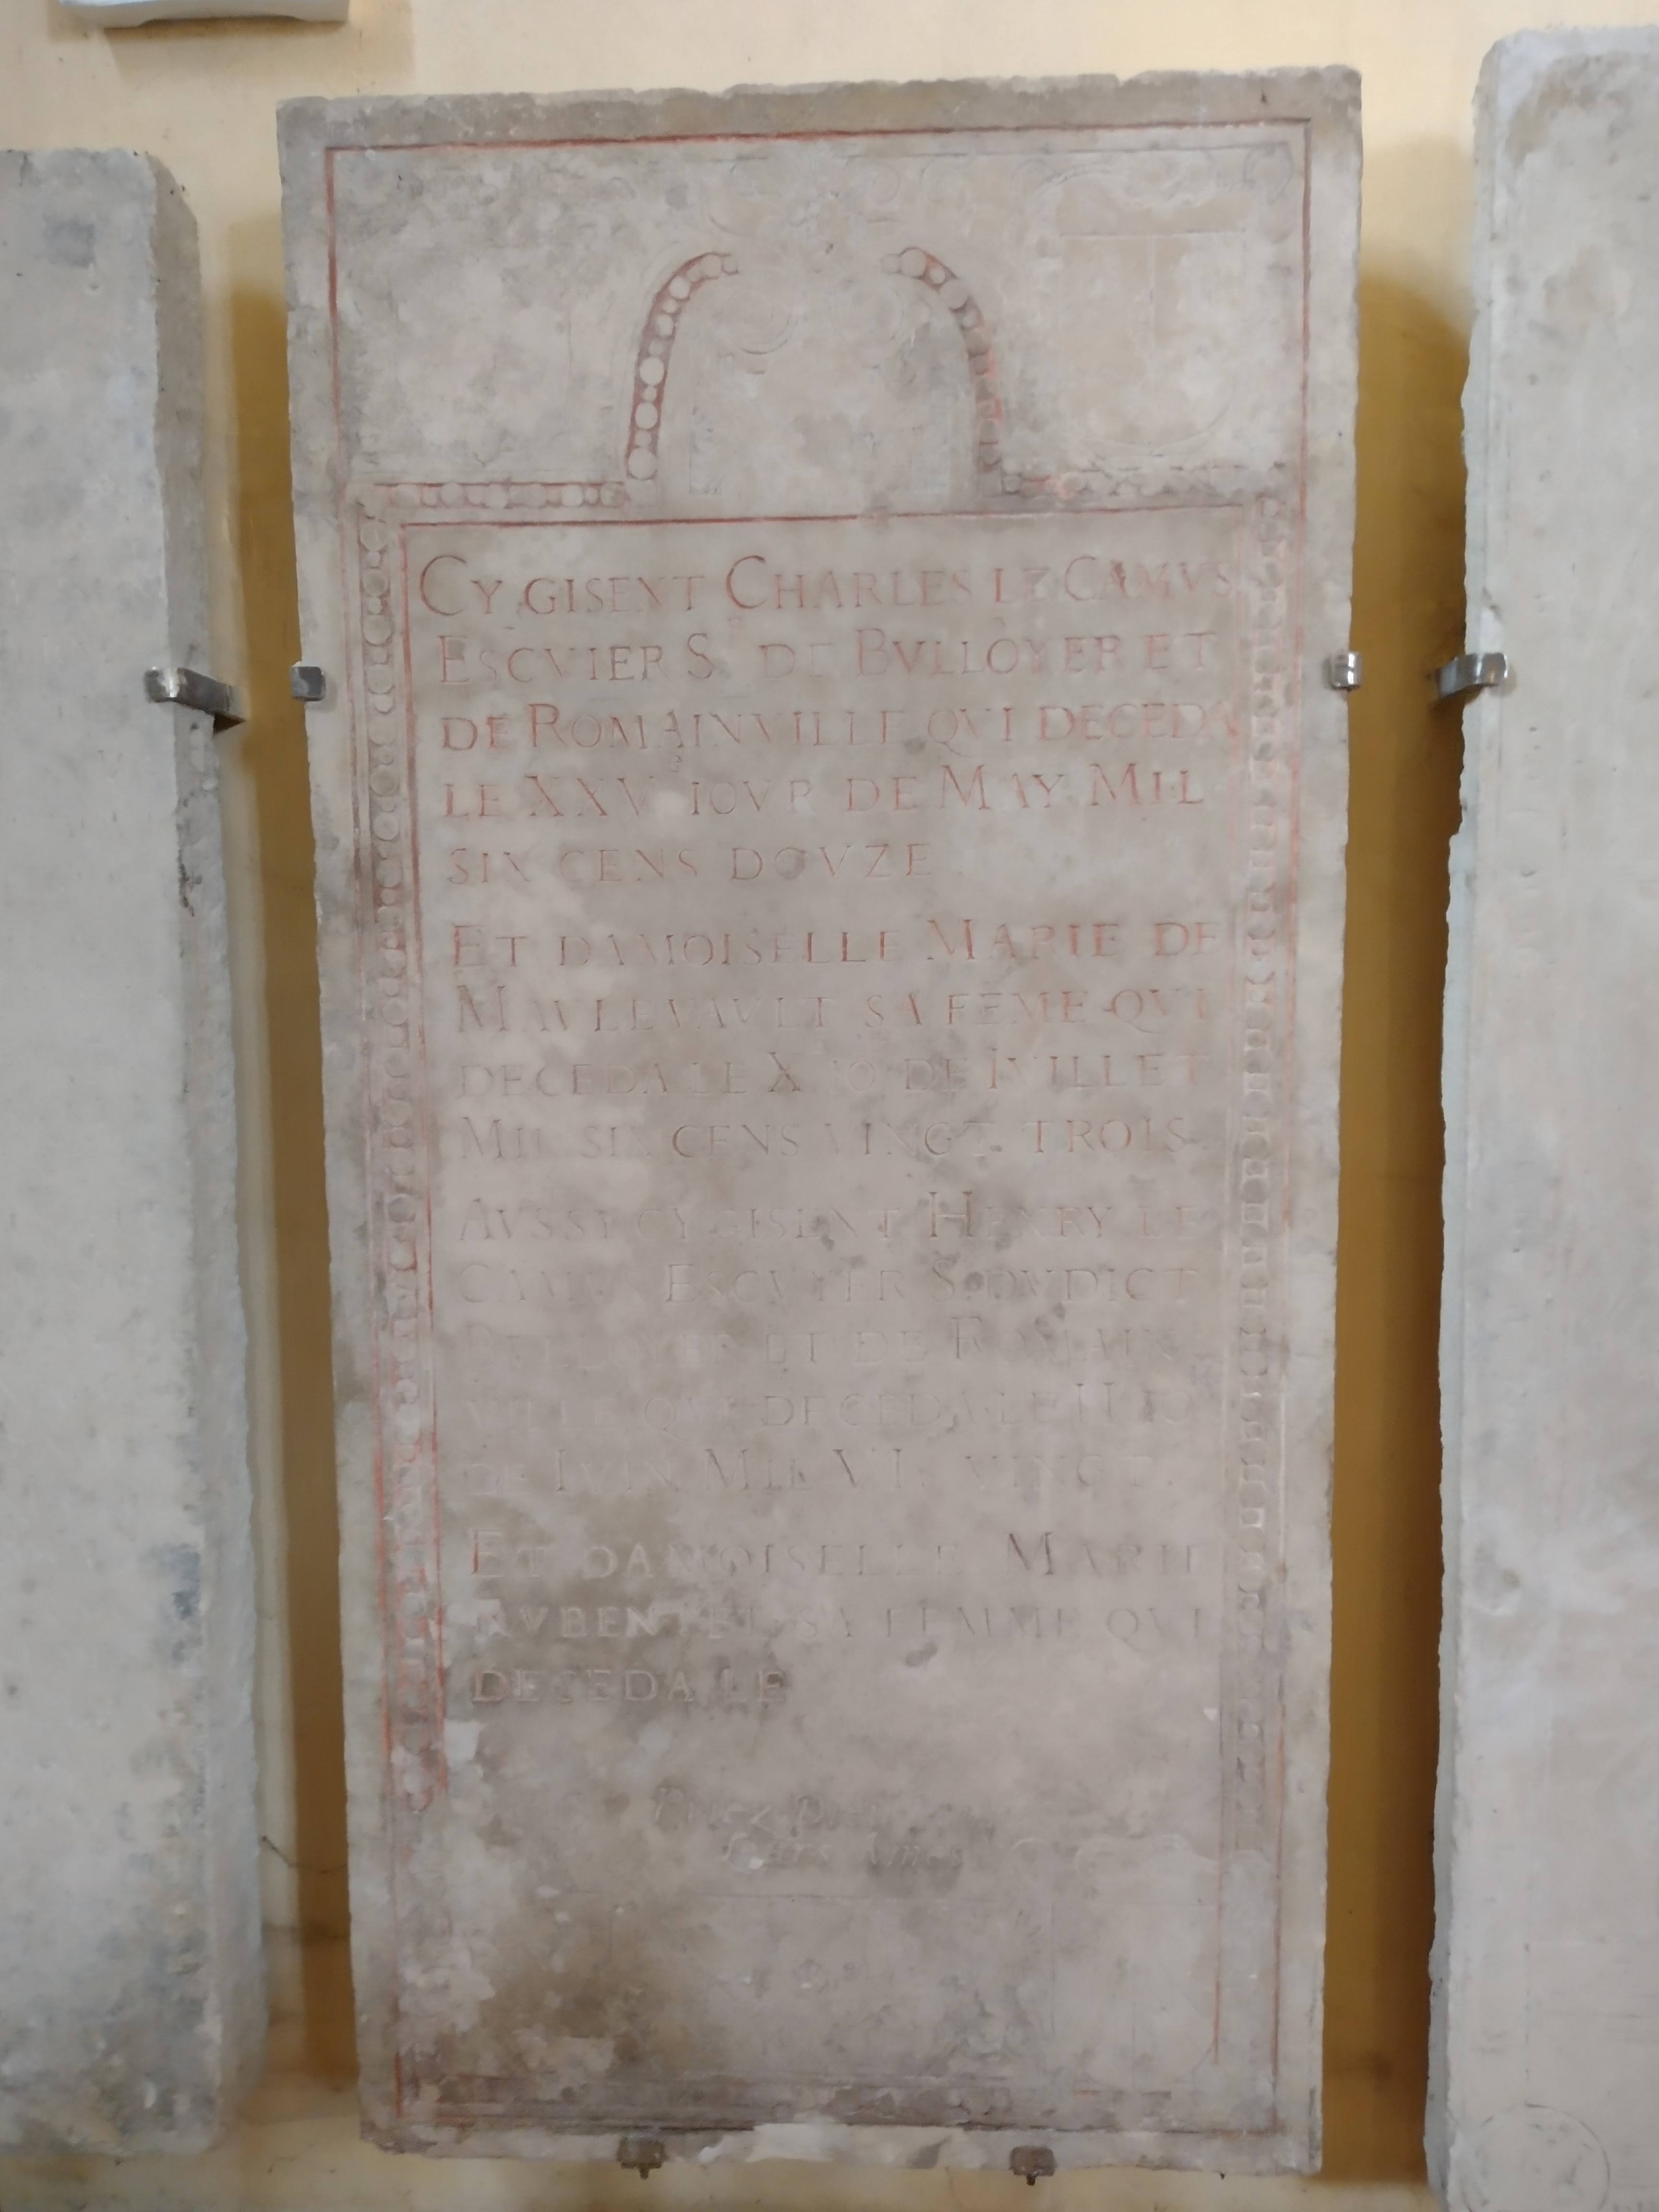 CY GISENT CHARLES LE CAMVS
ESCVIER S DE BVLLOYER ET
DE ROMAINVILLE QVI DECEDA
LE XXV IOVR DE MAY MIL
SIX CENS DOVZE
ET DAMOISELLE MARIE DE
SA FEME QVI
DECEDA LE X IO DE IVILLET
MIL SIX CENS VINGT TROIS
AVSSY CY GISENT HENRY LE
CAMVS ESCVIER Sr DVDICT
BVLLOYER ET DE ROMAIN
VILLE QVI DECEDA LE II IO
DE IVIN MIL VIc VINGT
ET DAMOISELLE MARIE
RVBENTEL SA FEMME QVI
DECEDA LE
Priez Dieu
Leurs Ames